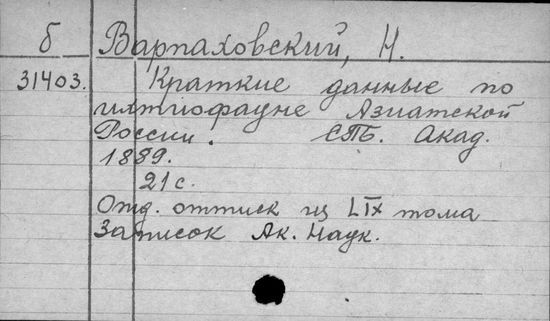 б Варпаховский, Н.
31403. Краткие данные по
ихтиофауне Азиатской
России. СПБ. Акад.
1889.
21 с.
Отд. оттиск из LIX тома
Записок Ак. Наук.